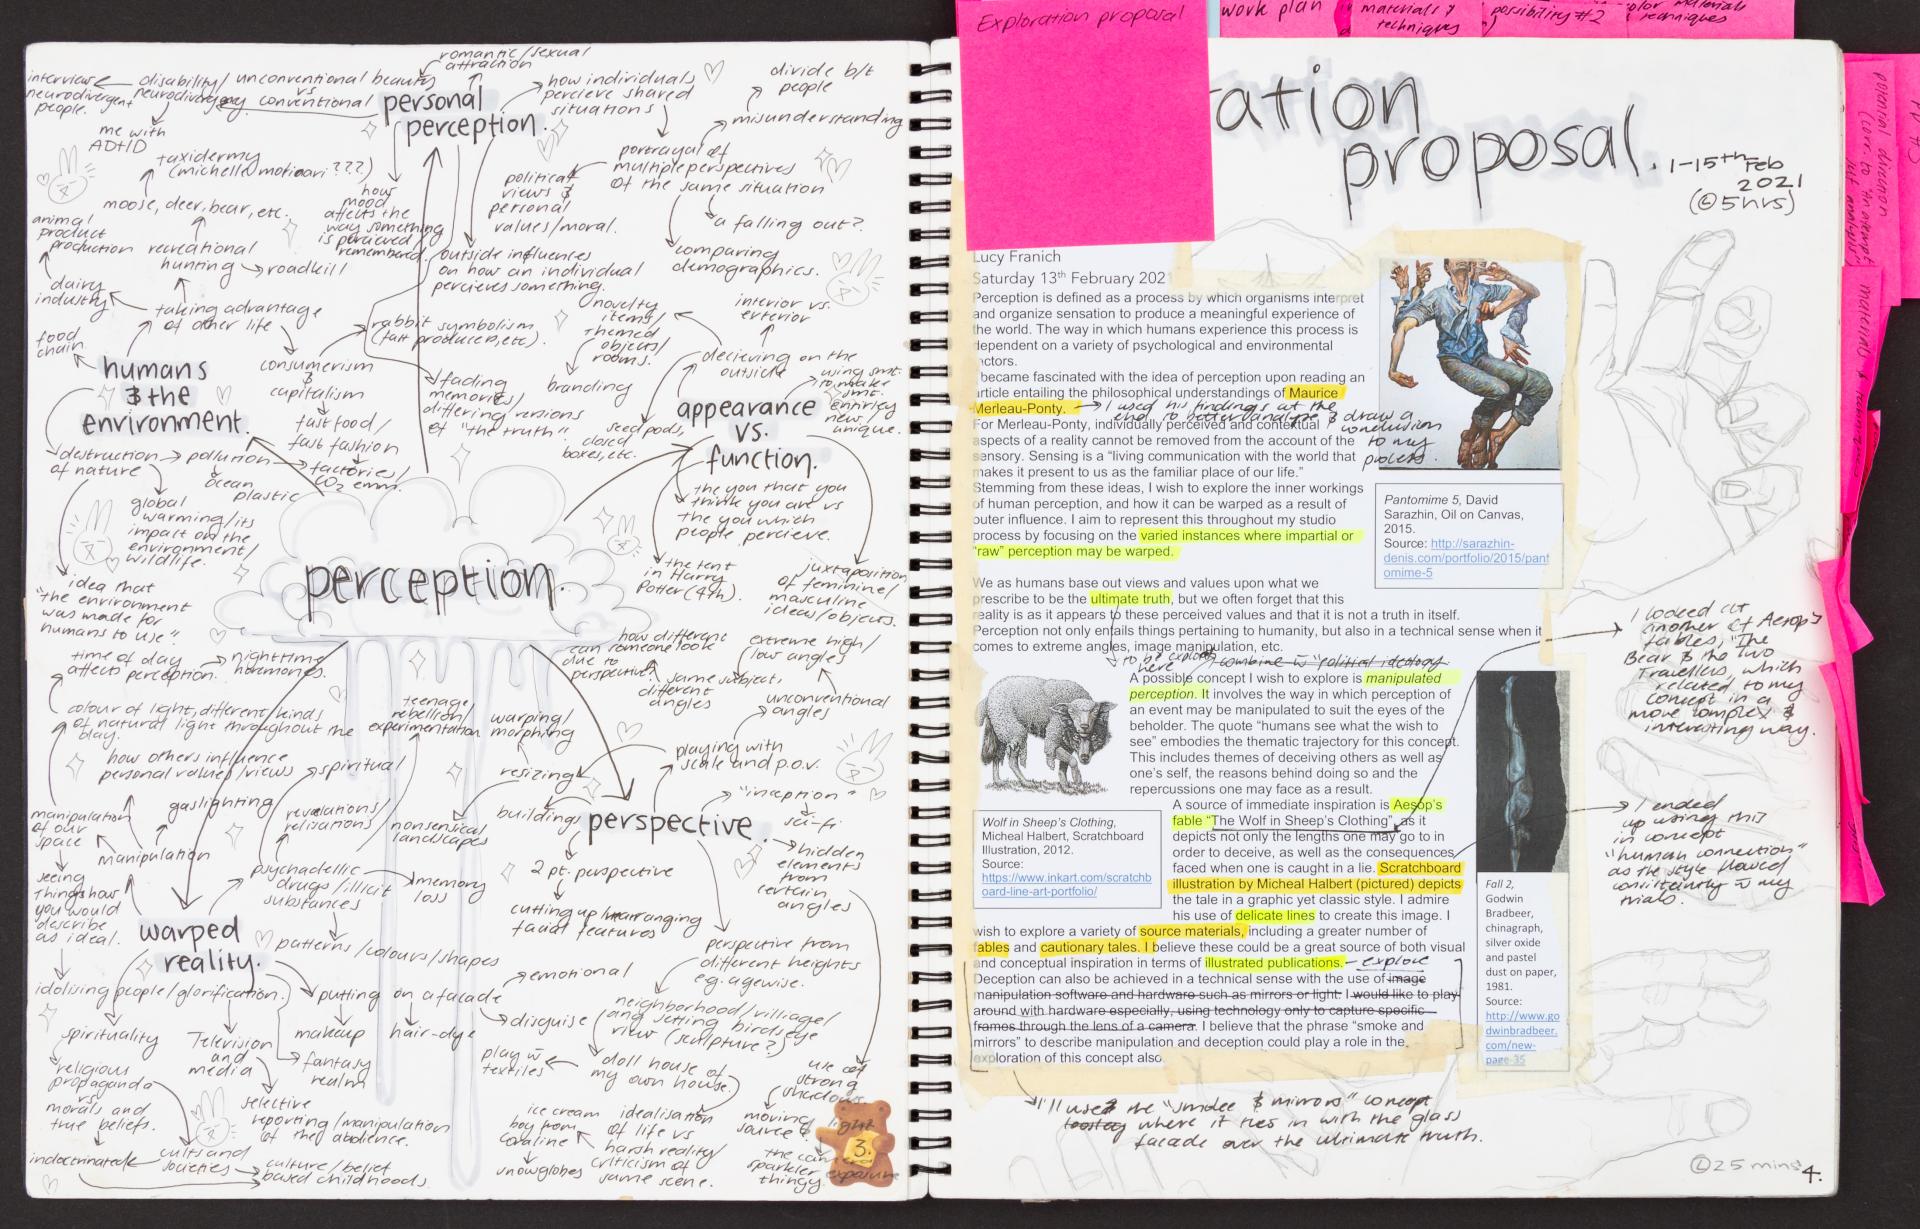 Exploration proposal
work plan
materials & techniques
possibility #2
color materials & techniques
romantic/sexual
attraction
interview
neurodivergent
people.
disability/
neurodivergency
unconventional beauty
vs
conventional
personal
perception.
how individuals
percieve shared
situations
divide b/t
people
misunderstanding
me with
ADHD
taxidermy
(michelle motioari ???)
moose, deer, bear, etc.
how
mood
affects the
way something
is percieved/
remembered.
political
views &
personal
values/moral.
portrayal of
multiple perspectives
of the same situation
a falling out?
comparing
demographics.
animal
product
production
recreational
hunting
roadkill
outside influences
on how an individual
percieves something.
dairy
industry
taking advantage
of other life
food
chain
rabbit symbolism
(fast producers, etc).
novelty
items/
themed
objects/
rooms.
interior vs.
exterior
decieving on the
outside
using smt.
to make
smt.
entirley
new/
unique.
humans
& the
environment.
consumerism
&
capitalism
fading
memories/
differing versions
of "the truth".
branding
fast food/
fast fashion
seed pods,
closed
boxes, etc.
appearance
vs.
function.
destruction
of nature
pollution
factories/
CO2 emm.
ocean
plastic
global
warming/its
impact on the
environment/
wildlife.
the you that you
think you are vs
the you which
people percieve.
the tent
in Harry
Potter (4th).
juxtaposition
of feminine/
masculine
ideas/objects.
idea that
"the environment
was made for
humans to use"
perception.
time of day
affects perception.
nighttime
hormones.
how different
can someone look
due to
perspective?
extreme high/
low angles
same subject,
different
angles
unconventional
angles
colour of light, different kinds
of natural light throughout the
day.
teenage
rebellion/
experimentation
warping/
morphing
how others influence
personal values/views
spiritual
resizing
playing with
scale and p.o.v.
gaslighting
revelations/
relisations
nonsensical
landscapes
buildings
perspective.
"inception"
sci-fi
manipulation
of our
space
manipulation
2 pt. perspective
hidden
elements
from
certain
angles
seeing
things how
you would
describe
as ideal.
psychadellic
drugs/illicit
substances
memory
loss
cutting up/rearranging
facial features
warped
reality.
patterns/colours/shapes
perspective from
different heights
e.g. agewise.
emotional
idolising people/glorification.
putting on a facade
disguise
neighborhood/village/
and setting birds eye
view (sculpture?)
spirituality
Television
and
media
makeup
hair-dye
fantasy
realm
play w
textiles
doll house of
my own house
use of
strong
shadows
religious
propaganda
vs
morals and
true beliefs.
selective
reporting/manipulation
of the audience.
ice cream
boy from
coraline
snowglobes
idealisation
of life vs
harsh reality/
criticism of
same scene.
moving
source?
light
the camera
sparkler
thingy
exposure
indoctrinated
cults and
societies
culture/belief
based childhoods.
3.
ration
proposal.
1-15th Feb
2021
(5hrs)
Lucy Franich
Saturday 13th February 2021
Perception is defined as a process by which organisms interpret
and organize sensation to produce a meaningful experience of
the world. The way in which humans experience this process is
dependent on a variety of psychological and environmental
actors.
I became fascinated with the idea of perception upon reading an
article entailing the philosophical understandings of Maurice
Merleau-Ponty.
I used his findings at the
end, to better analyse & draw a
conclusion
to my
process.
For Merleau-Ponty, individually perceived and contextual
aspects of a reality cannot be removed from the account of the
sensory. Sensing is a “living communication with the world that
makes it present to us as the familiar place of our life.”
Stemming from these ideas, I wish to explore the inner workings
of human perception, and how it can be warped as a result of
outer influence. I aim to represent this throughout my studio
process by focusing on the varied instances where impartial or
“raw” perception may be warped.
Pantomime 5, David
Sarazhin, Oil on Canvas,
2015.
Source: http://sarazhin-
denis.com/portfolio/2015/pant
omime-5
We as humans base out views and values upon what we
prescribe to be the ultimate truth, but we often forget that this
reality is as it appears to these perceived values and that it is not a truth in itself.
Perception not only entails things pertaining to humanity, but also in a technical sense when it
comes to extreme angles, image manipulation, etc.
to be explored
here
combine w "political ideology
A possible concept I wish to explore is manipulated
perception. It involves the way in which perception of
an event may be manipulated to suit the eyes of the
beholder. The quote “humans see what the wish to
see” embodies the thematic trajectory for this concept.
This includes themes of deceiving others as well as
one’s self, the reasons behind doing so and the
repercussions one may face as a result.
A source of immediate inspiration is Aesop’s
fable “The Wolf in Sheep’s Clothing”, as it
depicts not only the lengths one may go to in
order to deceive, as well as the consequences
faced when one is caught in a lie. Scratchboard
illustration by Micheal Halbert (pictured) depicts
the tale in a graphic yet classic style. I admire
his use of delicate lines to create this image. I
wish to explore a variety of source materials, including a greater number of
fables and cautionary tales. I believe these could be a great source of both visual
and conceptual inspiration in terms of illustrated publications. - explore
Deception can also be achieved in a technical sense with the use of image
manipulation software and hardware such as mirrors or light. I would like to play
around with hardware especially, using technology only to capture specific
frames through the lens of a camera. I believe that the phrase “smoke and
mirrors” to describe manipulation and deception could play a role in the
exploration of this concept also.
Wolf in Sheep’s Clothing,
Micheal Halbert, Scratchboard
Illustration, 2012.
Source:
https://www.inkart.com/scratchb
oard-line-art-portfolio/
Fall 2,
Godwin
Bradbeer,
chinagraph,
silver oxide
and pastel
dust on paper,
1981.
Source:
http://www.go
dwinbradbeer.
com/new-
page-35
I looked at
another of Aesop's
fables, "The
Bear & the Two
Travellers, which
related to my
concept in a
more complex &
interesting way.
I ended
up using this
in concept
"human connection"
as the style flowed
consistently w my
trials.
I'll use the "smoke & mirrors" concept
where it ties in with the glass
facade over the ultimate truth.
25 mins
4.